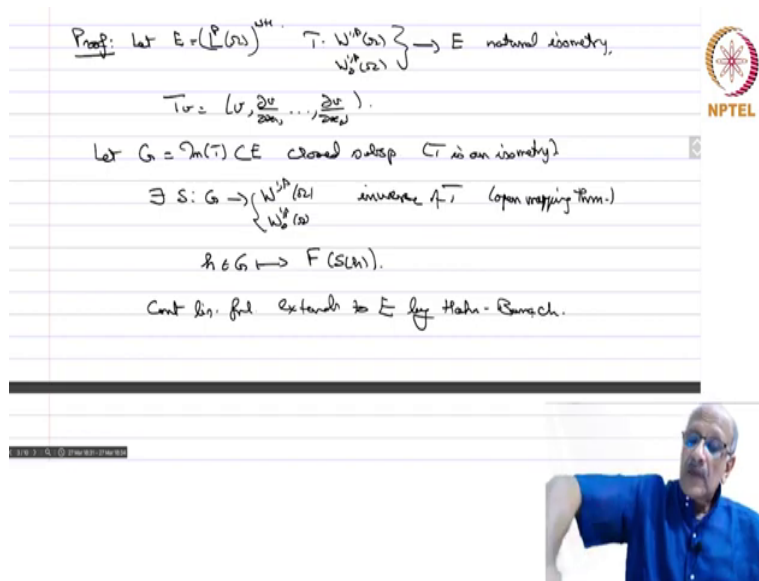 Proof: Let E = (L^p(Ω))^{N+1}. T: W^{1,p}(Ω) W_0^{1,p}(Ω) } → E natural isometry,
Tv = (v, ∂v/∂x_1, ..., ∂v/∂x_N).
Let G = Im(T) ⊂ E closed subsp (T is an isometry)
∃ S: G → { W^{1,p}(Ω) W_0^{1,p}(Ω) inverse of T (open mapping thm.)
h ∈ G ↦ F(S(h)).
Cont lin. fnl. extends to E by Hahn-Banach.
NPTEL